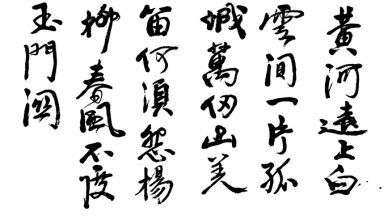 黄河遠上白
雲间一片孤
城萬仞山羌
笛何須怨楊
柳春風不度
玉門関